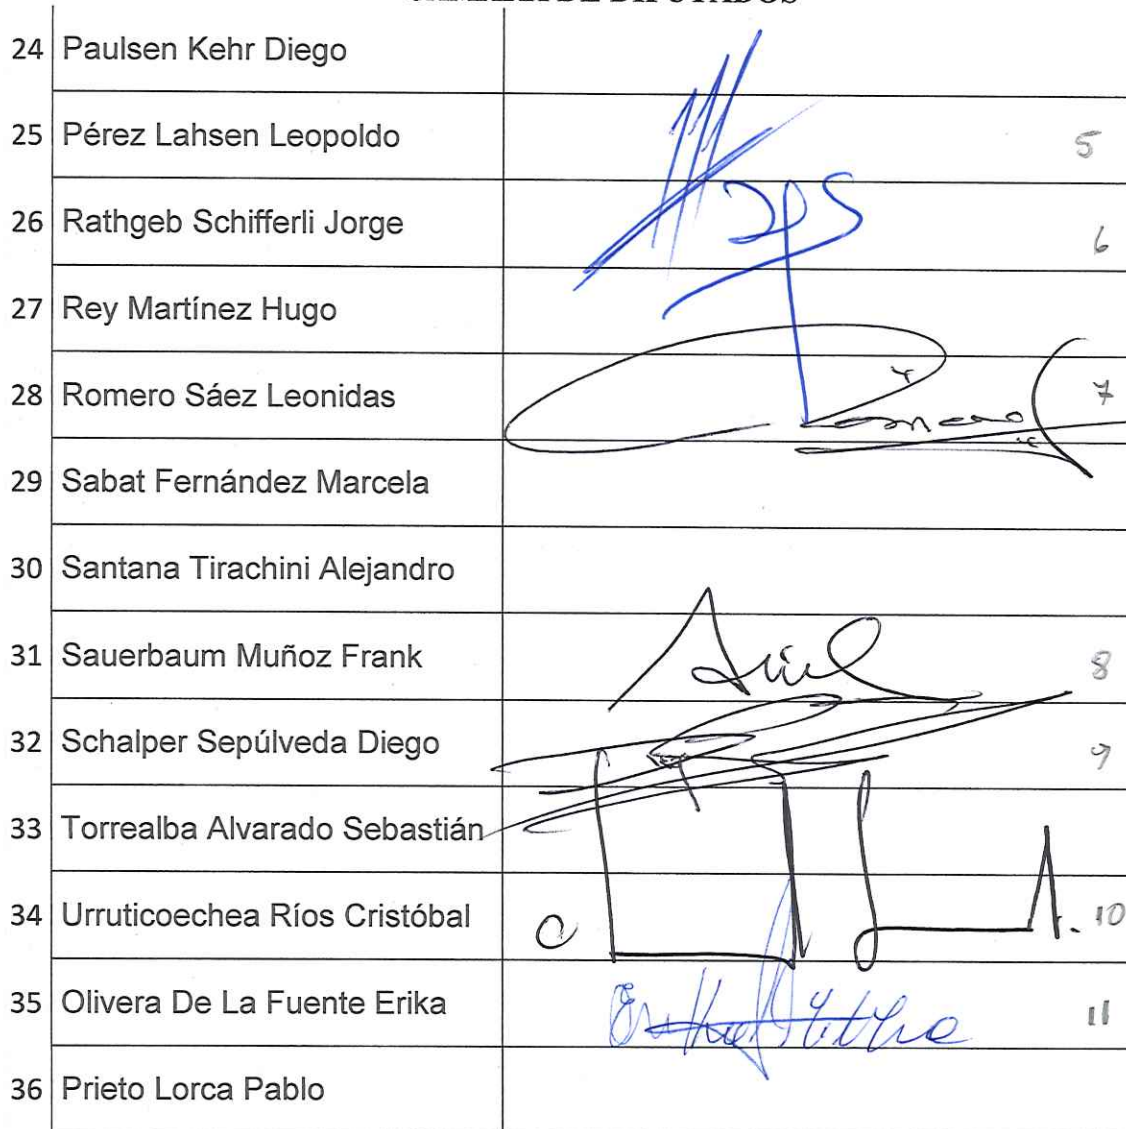 24 Paulsen Kehr Diego
25 Pérez Lahsen Leopoldo 5
26 Rathgeb Schifferli Jorge 6
27 Rey Martínez Hugo
28 Romero Sáez Leonidas 7
29 Sabat Fernández Marcela
30 Santana Tirachini Alejandro
31 Sauerbaum Muñoz Frank 8
32 Schalper Sepúlveda Diego 9
33 Torrealba Alvarado Sebastián
34 Urruticoechea Ríos Cristóbal 10
35 Olivera De La Fuente Erika 11
36 Prieto Lorca Pablo